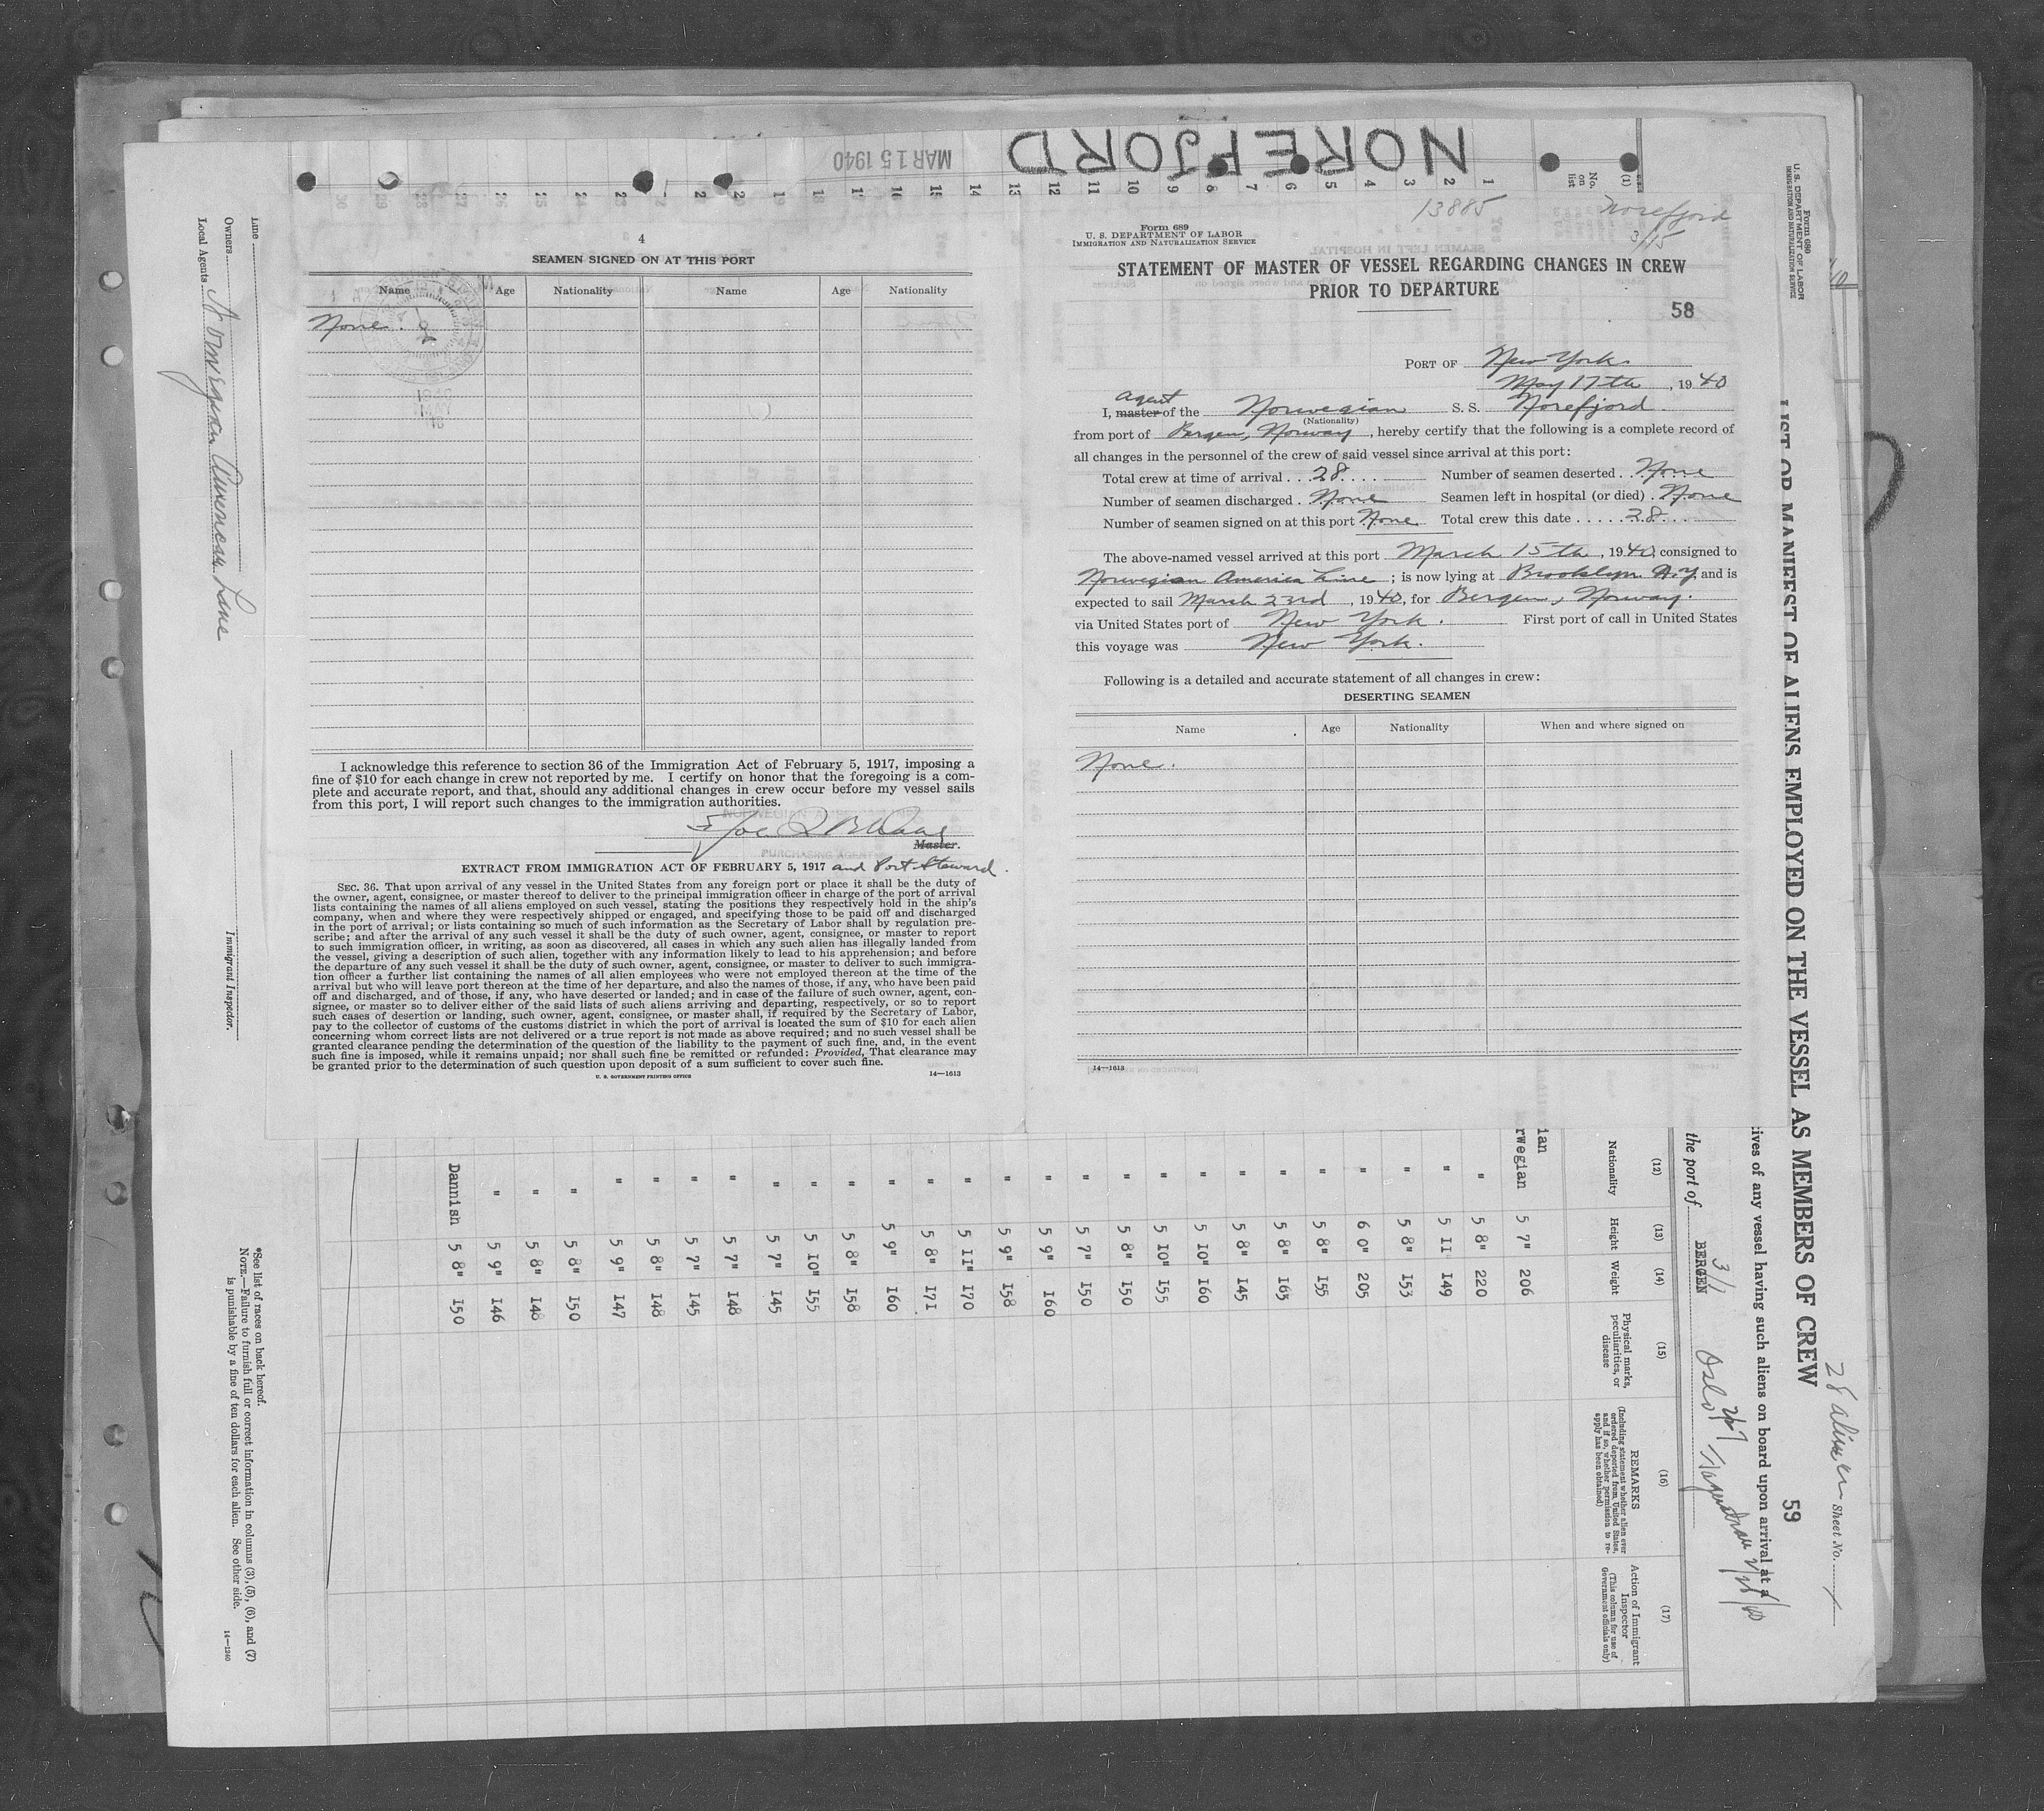 NOREFJORD
MAR 15 1940
(1)
No. on list
1 2 3 4 5 6 7 8 9 10 11 12 13 14 15 16 17 18 19
13885
Norefjord
3/15
4
SEAMEN SIGNED ON AT THIS PORT
Name Age Nationality Name Age Nationality
None.
I acknowledge this reference to section 36 of the Immigration Act of February 5, 1917, imposing a
fine of $10 for each change in crew not reported by me. I certify on honor that the foregoing is a com-
plete and accurate report, and that, should any additional changes in crew occur before my vessel sails
from this port, I will report such changes to the immigration authorities.
Master.
PURCHASING AGENT
EXTRACT FROM IMMIGRATION ACT OF FEBRUARY 5, 1917 and Port Steward.
SEC. 36. That upon arrival of any vessel in the United States from any foreign port or place it shall be the duty of
the owner, agent, consignee, or master thereof to deliver to the principal immigration officer in charge of the port of arrival
lists containing the names of all aliens employed on such vessel, stating the positions they respectively hold in the ship's
company, when and where they were respectively shipped or engaged, and specifying those to be paid off and discharged
in the port of arrival; or lists containing so much of such information as the Secretary of Labor shall by regulation pre-
scribe; and after the arrival of any such vessel it shall be the duty of such owner, agent, consignee, or master to report
to such immigration officer, in writing, as soon as discovered, all cases in which any such alien has illegally landed from
the vessel, giving a description of such alien, together with any information likely to lead to his apprehension; and before
the departure of any such vessel it shall be the duty of such owner, agent, consignee, or master to deliver to such immigra-
tion officer a further list containing the names of all alien employees who were not employed thereon at the time of the
arrival but who will leave port thereon at the time of her departure, and also the names of those, if any, who have been paid
off and discharged, and of those, if any, who have deserted or landed; and in case of the failure of such owner, agent, con-
signee, or master so to deliver either of the said lists of such aliens arriving and departing, respectively, or so to report
such cases of desertion or landing, such owner, agent, consignee, or master shall, if required by the Secretary of Labor,
pay to the collector of customs of the customs district in which the port of arrival is located the sum of $10 for each alien
concerning whom correct lists are not delivered or a true report is not made as above required; and no such vessel shall be
granted clearance pending the determination of the question of the liability to the payment of such fine, and, in the event
such fine is imposed, while it remains unpaid; nor shall such fine be remitted or refunded: Provided, That clearance may
be granted prior to the determination of such question upon deposit of a sum sufficient to cover such fine.
U. S. GOVERNMENT PRINTING OFFICE 14—1613
Form 689
U. S. DEPARTMENT OF LABOR
IMMIGRATION AND NATURALIZATION SERVICE
STATEMENT OF MASTER OF VESSEL REGARDING CHANGES IN CREW
PRIOR TO DEPARTURE
58
PORT OF New York
May 17th, 1940
agent
I, master of the Norwegian S. S. Norefjord.
(Nationality)
from port of Bergen, Norway, hereby certify that the following is a complete record of
all changes in the personnel of the crew of said vessel since arrival at this port:
Total crew at time of arrival . . . 28 . . . . Number of seamen deserted . . None
Number of seamen discharged . None Seamen left in hospital (or died) . None
Number of seamen signed on at this port None Total crew this date . . . . . 28 . . .
The above-named vessel arrived at this port March 15th, 1940, consigned to
Norwegian America Line; is now lying at Brooklyn N.Y. and is
expected to sail March 23rd, 1940, for Bergen, Norway.
via United States port of New York. First port of call in United States
this voyage was New York.
Following is a detailed and accurate statement of all changes in crew:
DESERTING SEAMEN
Name Age Nationality When and where signed on
None.
14—1613
Form 680
U. S. DEPARTMENT OF LABOR
IMMIGRATION AND NATURALIZATION SERVICE
LIST OR MANIFEST OF ALIENS EMPLOYED ON THE VESSEL AS MEMBERS OF CREW
59
28 aliens
Sheet No.
ives of any vessel having such aliens on board upon arrival at a
the port of BERGEN 3/1 Oslo
(12) (13) (14) (15) (16) (17)
Nationality Height Weight Physical marks, peculiarities, or disease REMARKS (Including statement whether alien ever ordered deported from United States, and if so, whether permission to re-apply has been obtained) Action of Immigrant Inspector (This column for use of Government officials only)
ian
rwegian 5 7" 206
" 5 8" 220
" 5 11 149
" 5 8" 153
" 6 0" 205
" 5 8" 155
" 5 8" 163
" 5 8" 145
" 5 10" 160
" 5 10" 155
" 5 8" 150
" 5 7" 150
" 5 9" 160
" 5 9" 158
" 5 11" 170
" 5 8" 171
" 5 9" 160
" 5 8" 158
" 5 10" 155
" 5 7" 145
" 5 7" 148
" 5 7" 145
" 5 8" 148
" 5 9" 147
" 5 8" 150
" 5 8" 148
" 5 9" 146
Dannish 5 8" 150
Line
Owners
Local Agents Norwegian American Line
Immigrant Inspector.
*See list of races on back hereof.
NOTE.—Failure to furnish full or correct information in columns (3), (5), (6), and (7)
is punishable by a fine of ten dollars for each alien. See other side.
14—1240